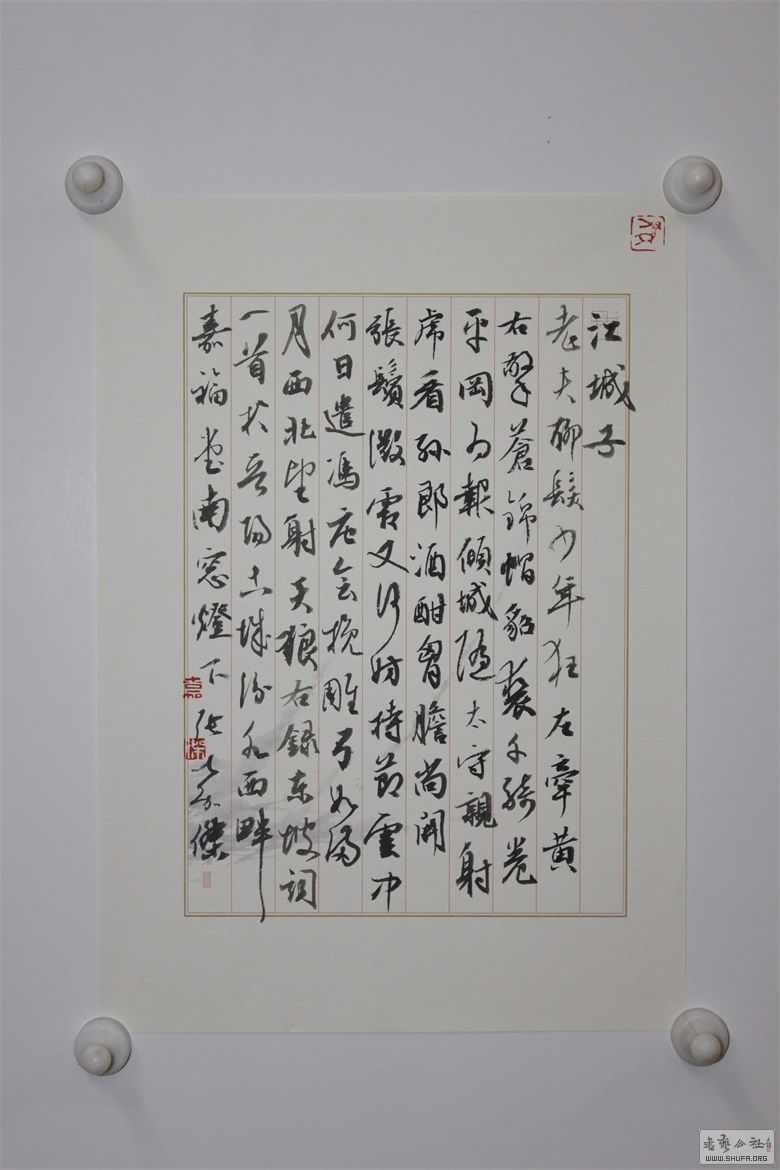 江城子
老夫聊髮少年狂左牽黃
右擎蒼錦帽貂裘千騎卷
平岡為報傾城隨太守親射
虎看孫郎酒酣胷膽尚開
張鬢微霜又何妨持節雲中
何日遣馮唐會挽雕弓如滿
月西北望射天狼右錄東坡詞
一首於晉陽古城汾水西畔
嘉福堂南窓燈下張傑
書藝公社
WWW.SHUFA.ORG